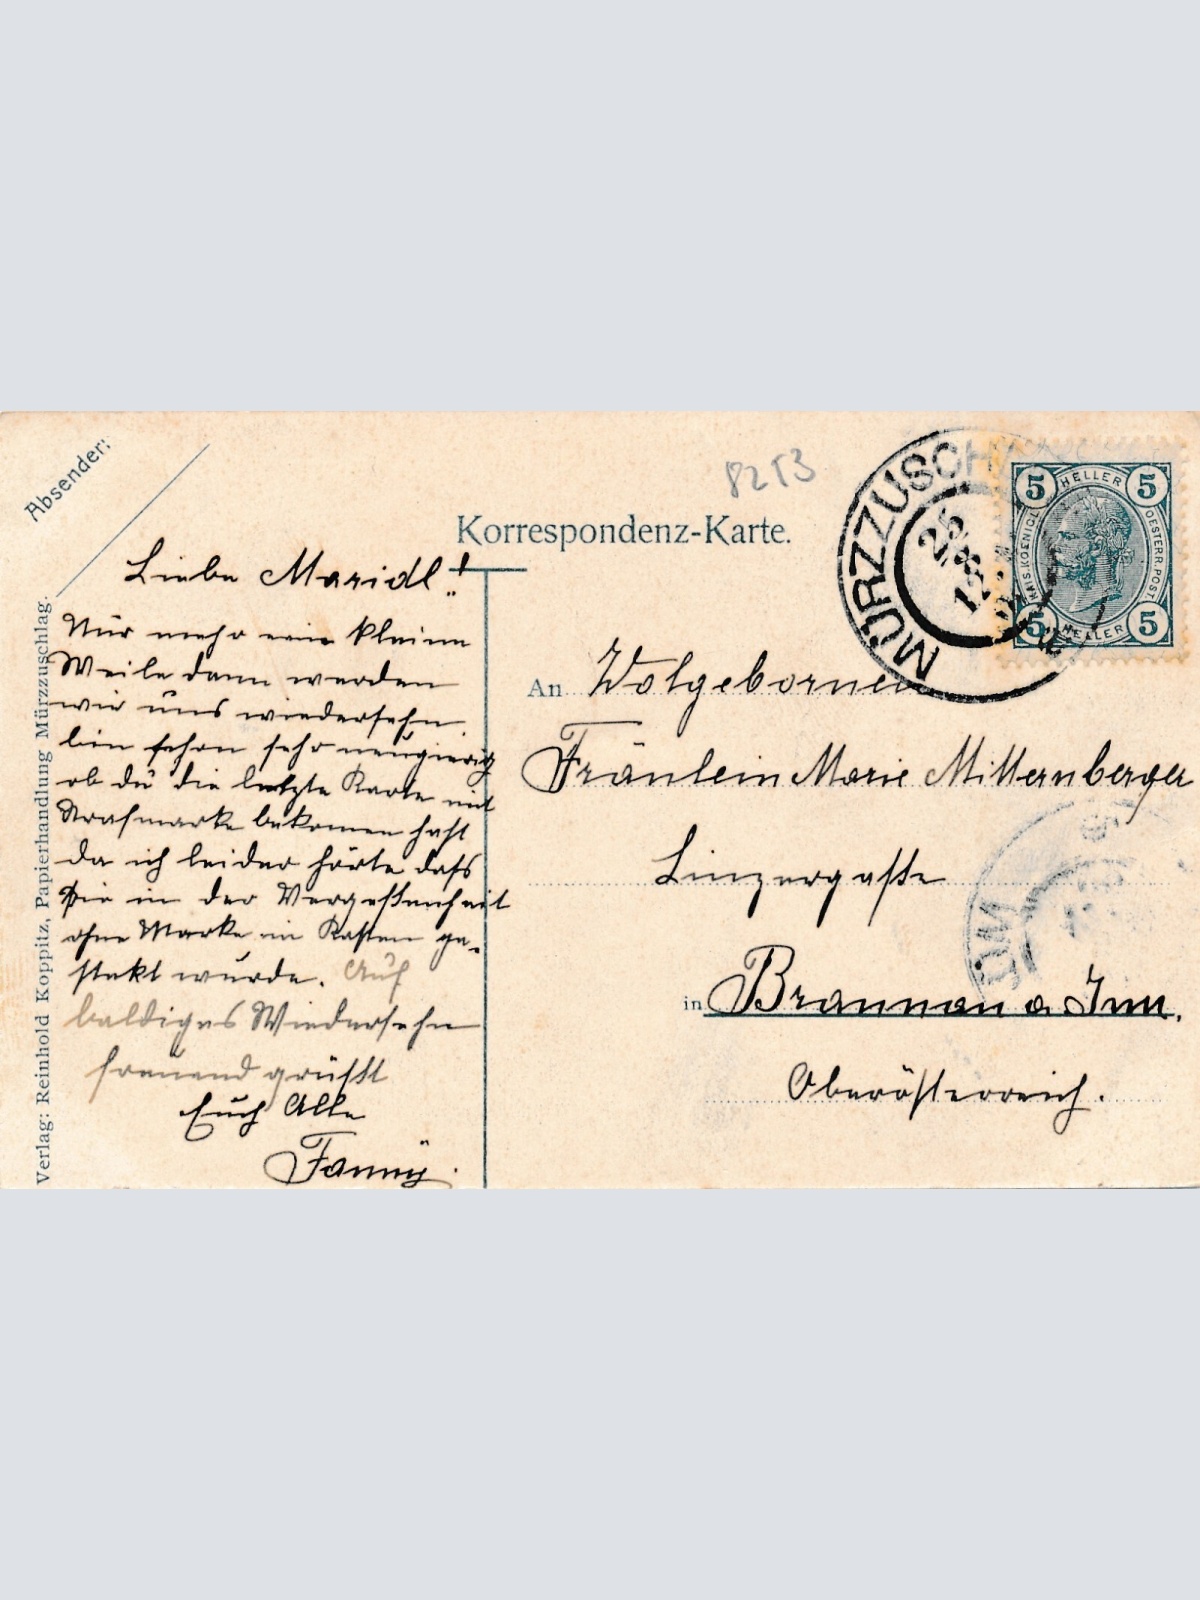 Absender:
Korrespondenz-Karte.
8253
MÜRZZUSCH
25
5 HELLER 5
KAIS. KOENIGL. OESTERR. POST.
5 HELLER 5
Liebe Maridl!
Nur mehr eine kleine
Weile dann werden
wir uns wiedersehn.
bin schon sehr neugierig
ob du die letzte Karte mit
Strafmarke bekomen hast
da ich leider hörte dass
sie in der Vergessenheit
ohne Marke in Kasten ge-
stekt wurde. Auf
baldiges Wiedersehn
freuend grüsst
Euch Alle
Fanny.
An Wolgebornen
Fräulein Marie Mitternberger
Linzergasse
in Braunau a. Inn.
Oberösterreich.
Verlag: Reinhold Koppitz, Papierhandlung Mürzzuschlag.